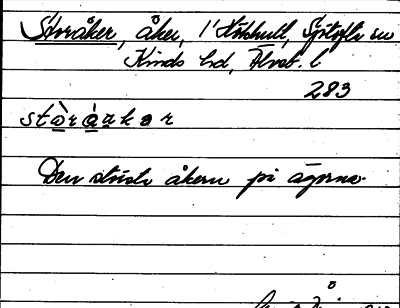 Storåker, åker, 1' Stokhult, Sjötofta sn
Kinds hd, Älvsb. l
283
stòràakər
Den största åkern på ägorna.